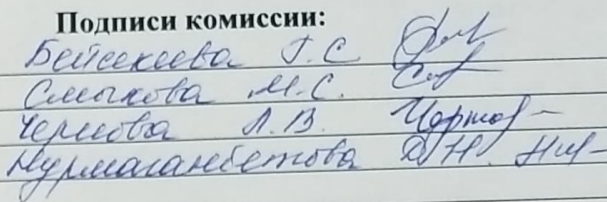 Подписи комиссии:
Бейсекеева Г. С
Смыкова М. С.
Чернова Л. В.
Нурмаганбетова Д. Н.